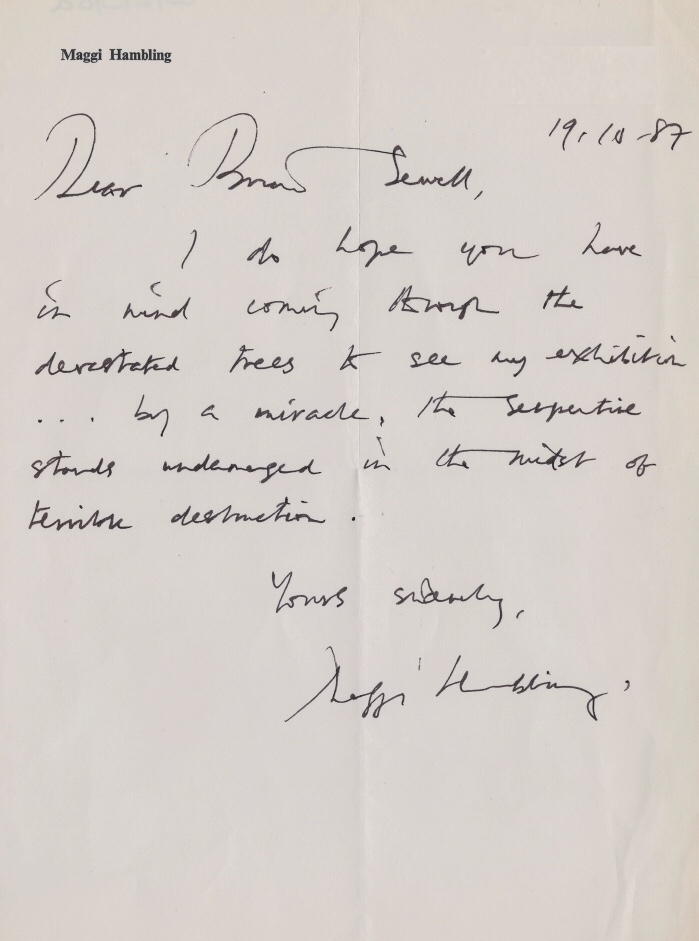 Maggi Hambling
19.10.87
Dear Brian Sewell,
I do hope you have
in mind coming through the
devastated trees to see my exhibition
... by a miracle, the Serpentine
stands undamaged in the midst of
terrible destruction.
Yours sincerely,
Maggi Hambling.